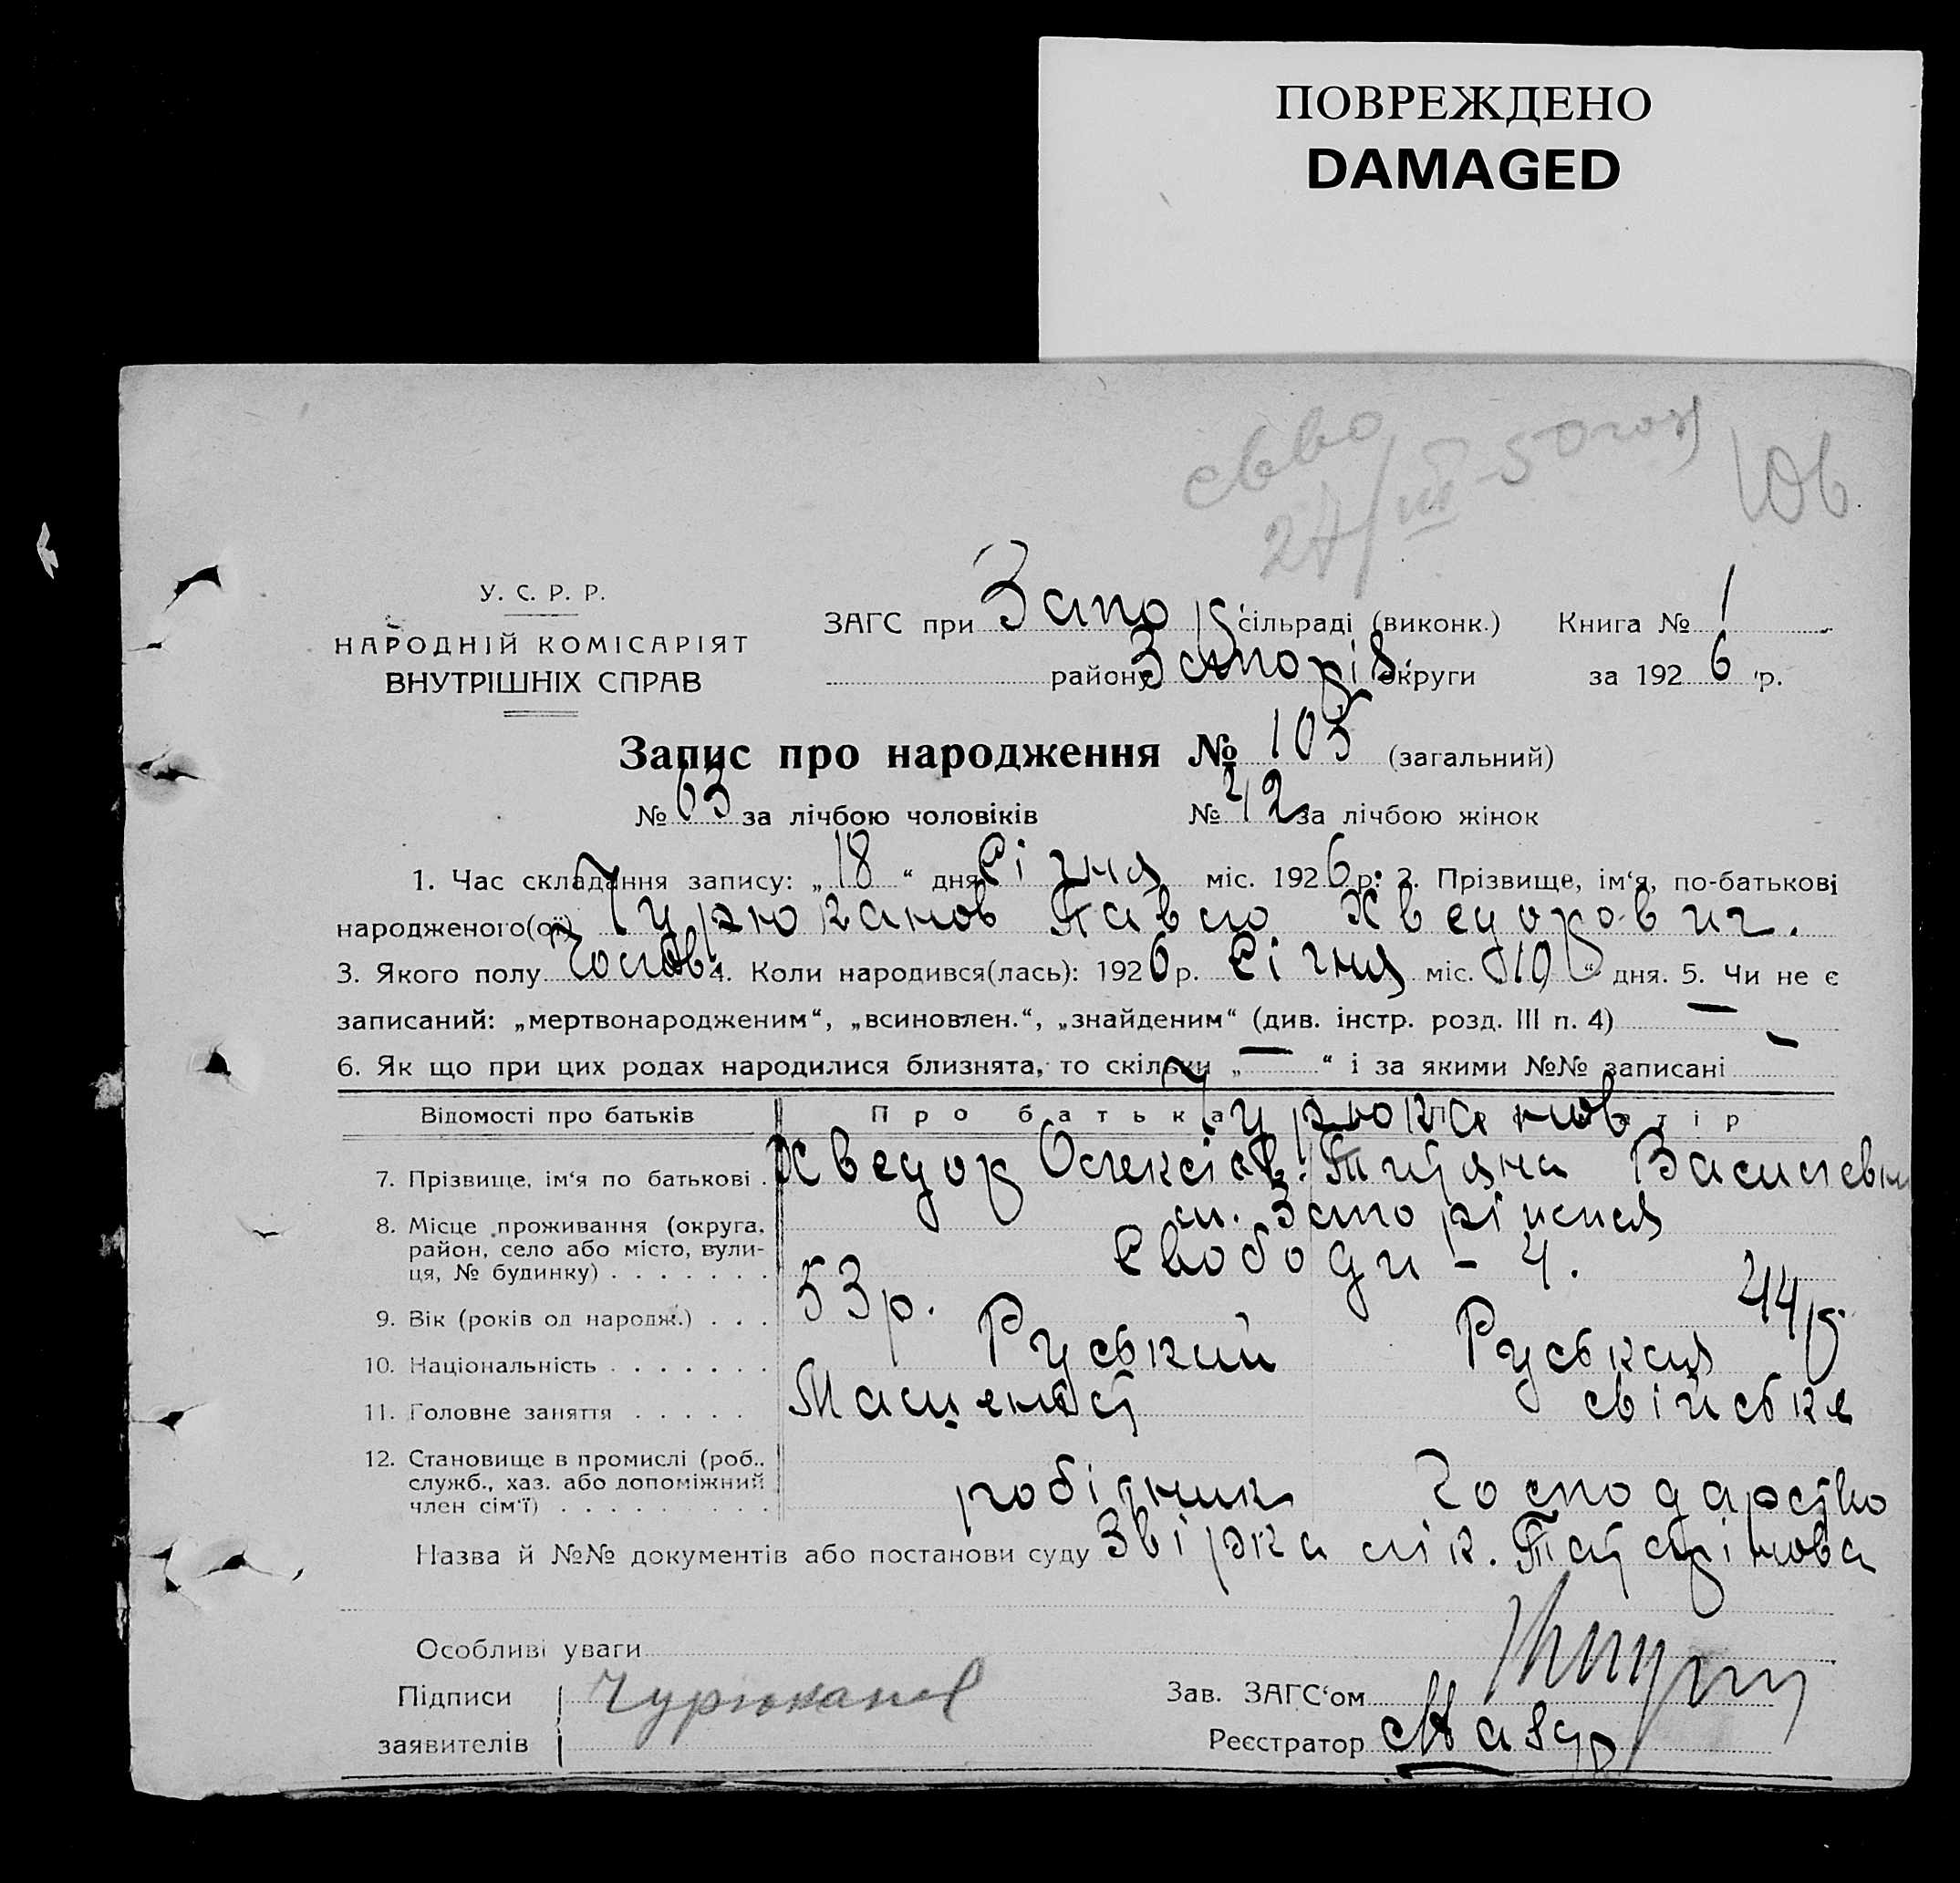 ПОВРЕЖДЕНО
DAMAGED
27/III-50
Юв
У. С. Р. Р.
НАРОДНІЙ КОМІСАРІЯТ
ВНУТРІШНІХ СПРАВ
ЗАГС при Запор сільраді (виконк.) Книга № 1
району Запоріз. округи за 1926 р.
Запис про народження № 105 (загальний)
№ 63 за лічбою чоловіків № 42 за лічбою жінок
1. Час складання запису: „18“ дня Січня міс. 1926 р. 2. Прізвище, ім‘я, по-батькові
народженого(ої) Чурюканов Павло Хведорович.
3. Якого полу Чолов. 4. Коли народився(лась): 1926 р. Січня міс. „10“ дня. 5. Чи не є
записаний: „мертвонародженим“, „всиновлен.“, „знайденим“ (див. інстр. розд. III п. 4) —
6. Як що при цих родах народилися близнята, то скільки „—“ і за якими №№ записані —
Відомості про батьків Про батька Чурюканов
7. Прізвище, ім‘я по батькові . Хведор Олексієв. Титяна Василевн
8. Місце проживання (округа, район, село або місто, вулиця, № будинку) . . . . . . . м. Запоріжжя
Свободи – 4.
9. Вік (років од народж.) . . . 53 р. 44 р.
10. Національність . . . . . . . Руський Руськая
11. Головне заняття . . . . . Машеніст свійське
12. Становище в промислі (роб., служб., хаз. або допоміжний член сім‘ї) . . . . . . . . . робітник господарство
Назва й №№ документів або постанови суду Звірка лік. Татарінова
Особливі уваги
Підписи заявителів Чурюканов
Зав. ЗАГС‘ом
Реєстратор Мазур